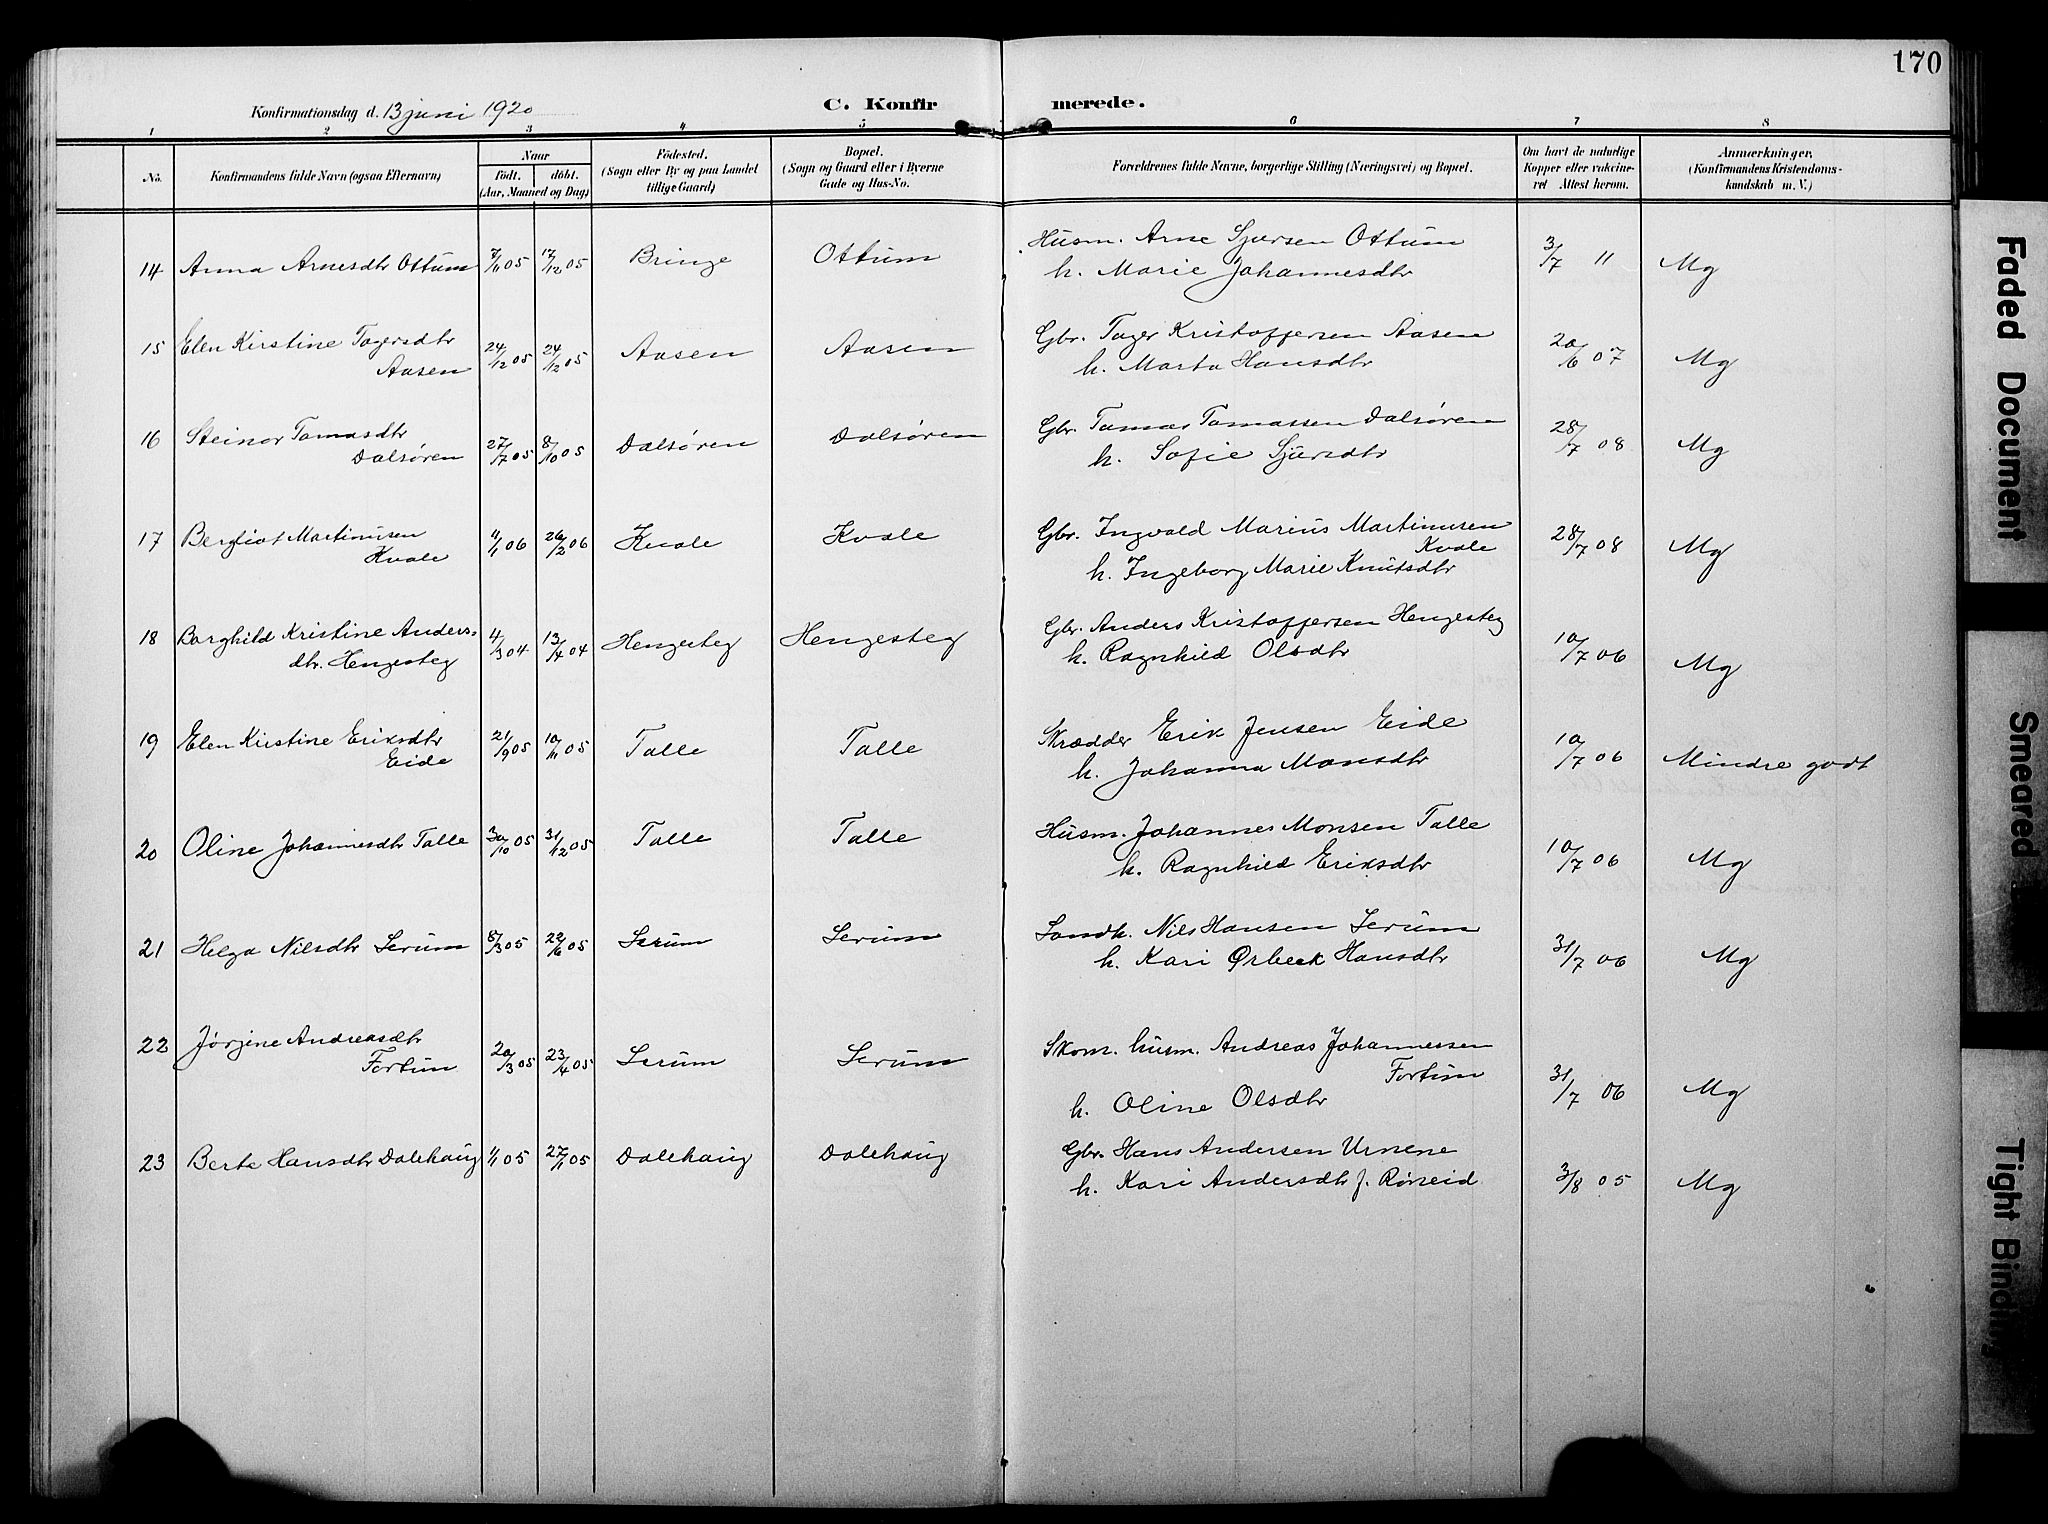 170
Konfirmationsdag d. 13 juni 1920
C. Konfirmerede.
1 2 3 4 5 6 7 8
No.
Konfirmandens fulde Navn (ogsaa Efternavn)
Naar
født. døbt.
(Aar, Maaned og Dag)
Fødested.
(Sogn eller By og paa Landet
tillige Gaard)
Bopæl.
(Sogn og Gaard eller i Byerne
Gade og Hus-No.
Forældrenes fulde Navne, borgerlige Stilling (Næringsvei) og Bopæl.
Om havt de naturlige
Kopper eller vakcine-
ret Attest herom.
Anmærkninger,
(Konfirmandens Kristendoms-
kundskab m. V.)
14 Anna Arnesdtr Ottum 7/11 05 17/12 05 Bringe Ottum Husm. Arne Sjursen Ottum 3/7 11 Mg
h. Marie Johannesdtr
15 Elen Kirstine Tagersdtr
Aasen 24/12 05 24/12 05 Aasen Aasen Gbr. Tager Kristoffersen Aasen 20/6 07 Mg
h. Marta Hansdtr
16 Steinor Tomasdtr
Dalsøren 27/7 05 8/10 05 Dalsøren Dalsøren Gbr. Tomas Tomassen Dalsøren 28/7 08 Mg
h. Sofie Sjursdtr
17 Bergliot Martinusen
Kvale 11/1 06 26/2 06 Kvale Kvale Gbr. Ingvald Marius Martinusen
Kvale 28/7 08 Mg
h. Ingeborg Marie Knutsdtr
18 Borghild Kristine Anders-
dtr. Hengesteg 4/3 04 13/4 04 Hengesteg Hengesteg Gbr. Anders Kristoffersen Hengesteg 10/7 06 Mg
h. Ragnhild Olsdtr
19 Elen Kirstine Eriksdtr
Eide 21/9 05 10/11 05 Talle Talle Skrædder Erik Jensen Eide 10/7 06 Mindre godt
h. Johanna Monsdtr
20 Oline Johannesdtr Talle 30/10 05 31/12 05 Talle Talle Husm. Johannes Monsen Talle 10/7 06 Mg
h. Ragnhild Eriksdtr
21 Helga Nilsdtr Lerum 8/3 05 22/6 05 Lerum Lerum Landh. Nils Hansen Lerum 31/7 06 Mg
h. Kari Ørbeck Hansdtr
22 Jørgine Andreasdtr
Fortun 20/3 05 23/4 05 Lerum Lerum Skom. husm. Andreas Johannessen
Fortun 31/7 06 Mg
h. Oline Olsdtr
23 Berte Hansdtr Dalehaug 1/1 05 27/1 05 Dalehaug Dalehaug Gbr. Hans Andersen Urnene 3/8 05 Mg
h. Kari Andersdtr f. Røneid
Faded Document
Smeared
Tight Binding